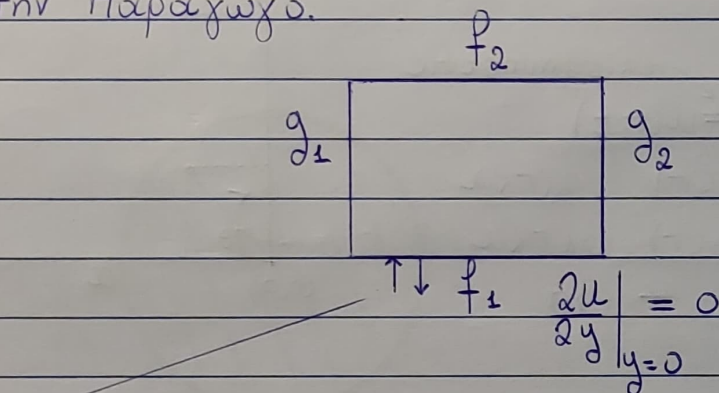 την παράγωγο.
f₂
g₁ g₂
↑↓ f₁ ∂u/∂y |y=0 = 0